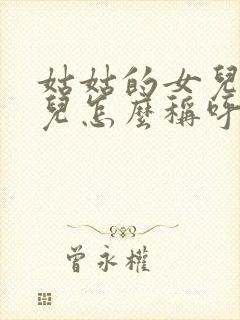 姑姑的女兒
兒怎麼稱呼
曾永權